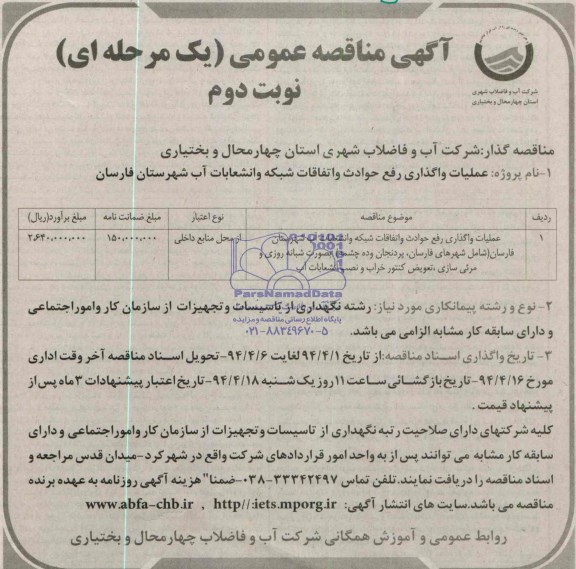 آگهی مناقصه عمومی (یک مرحله ای)
نوبت دوم
شرکت آب و فاضلاب شهری
استان چهارمحال و بختیاری
مناقصه گذار: شرکت آب و فاضلاب شهری استان چهارمحال و بختیاری
۱-نام پروژه: عملیات واگذاری رفع حوادث واتفاقات شبکه وانشعابات آب شهرستان فارسان
ردیف موضوع مناقصه نوع اعتبار مبلغ ضمانت نامه مبلغ برآورد(ریال)
۱ عملیات واگذاری رفع حوادث واتفاقات شبکه وانشعابات شهرستان از محل منابع داخلی ۱۵۰,۰۰۰,۰۰۰ ۲,۶۴۰,۰۰۰,۰۰۰
فارسان(شامل شهرهای فارسان، پردنجان وده چشمه) بصورت شبانه روزی و
مرئی سازی ،تعویض کنتور خراب و نصب انشعابات آب
ParsNamadData
پایگاه اطلاع رسانی مناقصه و مزایده
۰۲۱-۸۸۳۴۹۶۷۰-۵
۲- نوع و رشته پیمانکاری مورد نیاز: رشته نگهداری از تاسیسات وتجهیزات از سازمان کار وامور اجتماعی
و دارای سابقه کار مشابه الزامی می باشد.
۳- تاریخ واگذاری اسناد مناقصه:از تاریخ ۹۴/۴/۱ لغایت ۹۴/۴/۶-تحویل اسناد مناقصه آخر وقت اداری
مورخ ۹۴/۴/۱۶-تاریخ بازگشائی ساعت ۱۱ روز یک شنبه ۹۴/۴/۱۸-تاریخ اعتبار پیشنهادات ۳ماه پس از
پیشنهاد قیمت .
کلیه شرکتهای دارای صلاحیت رتبه نگهداری از تاسیسات وتجهیزات از سازمان کار وامور اجتماعی و دارای
سابقه کار مشابه می توانند پس از به واحد امور قراردادهای شرکت واقع در شهرکرد-میدان قدس مراجعه و
اسناد مناقصه را دریافت نمایند.تلفن تماس ۳۳۳۴۲۴۹۷-۰۳۸-ضمنا" هزینه آگهی روزنامه به عهده برنده
مناقصه می باشد.سایت های انتشار آگهی: www.abfa-chb.ir , http//:iets.mporg.ir
روابط عمومی و آموزش همگانی شرکت آب و فاضلاب چهارمحال و بختیاری